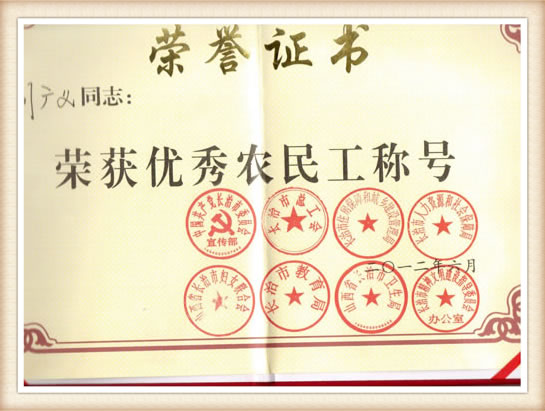 荣誉证书
广义同志：
荣获优秀农民工称号
中国共产党长治市委员会
宣传部
长治市总工会
长治市住房保障和城乡建设管理局
长治市人力资源和社会保障局
二〇一二年六月
山西省长治市妇女联合会
长治市教育局
山西省长治市卫生局
长治市精神文明建设指导委员会
办公室